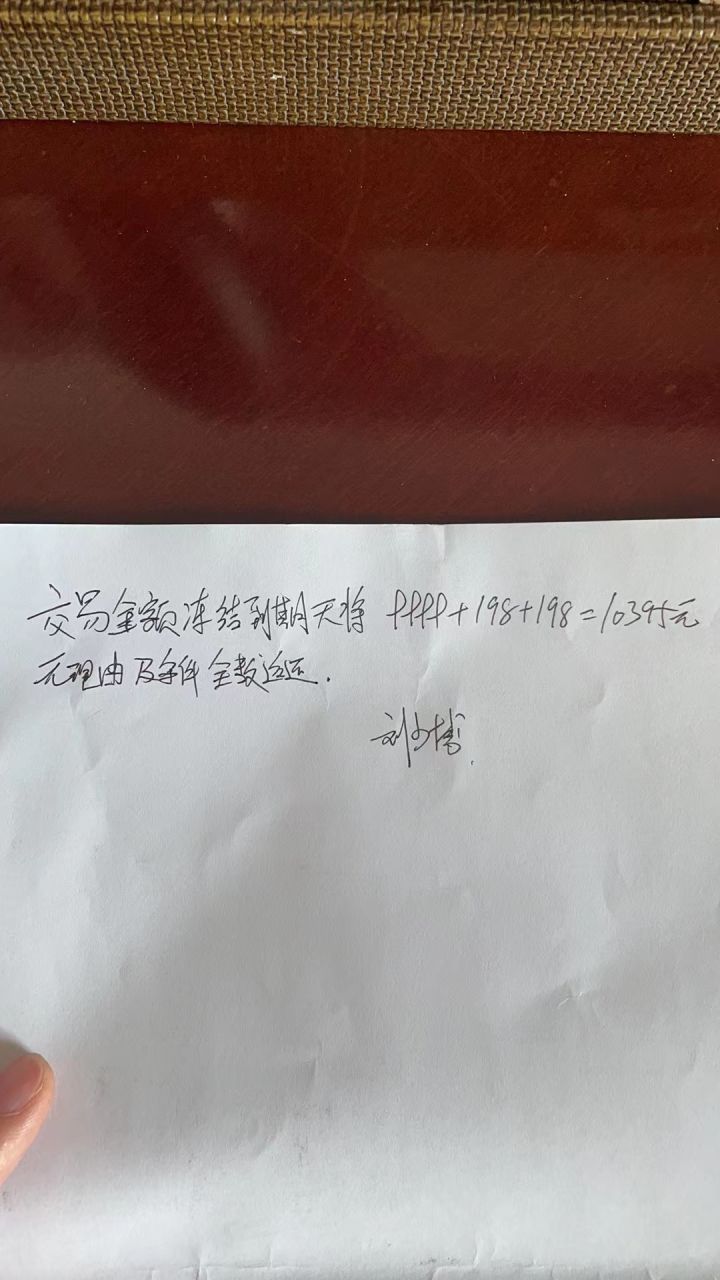 交易金额冻结到期天将 9999+198+198=10395元
无理由及条件 全数返还.
刘少博.